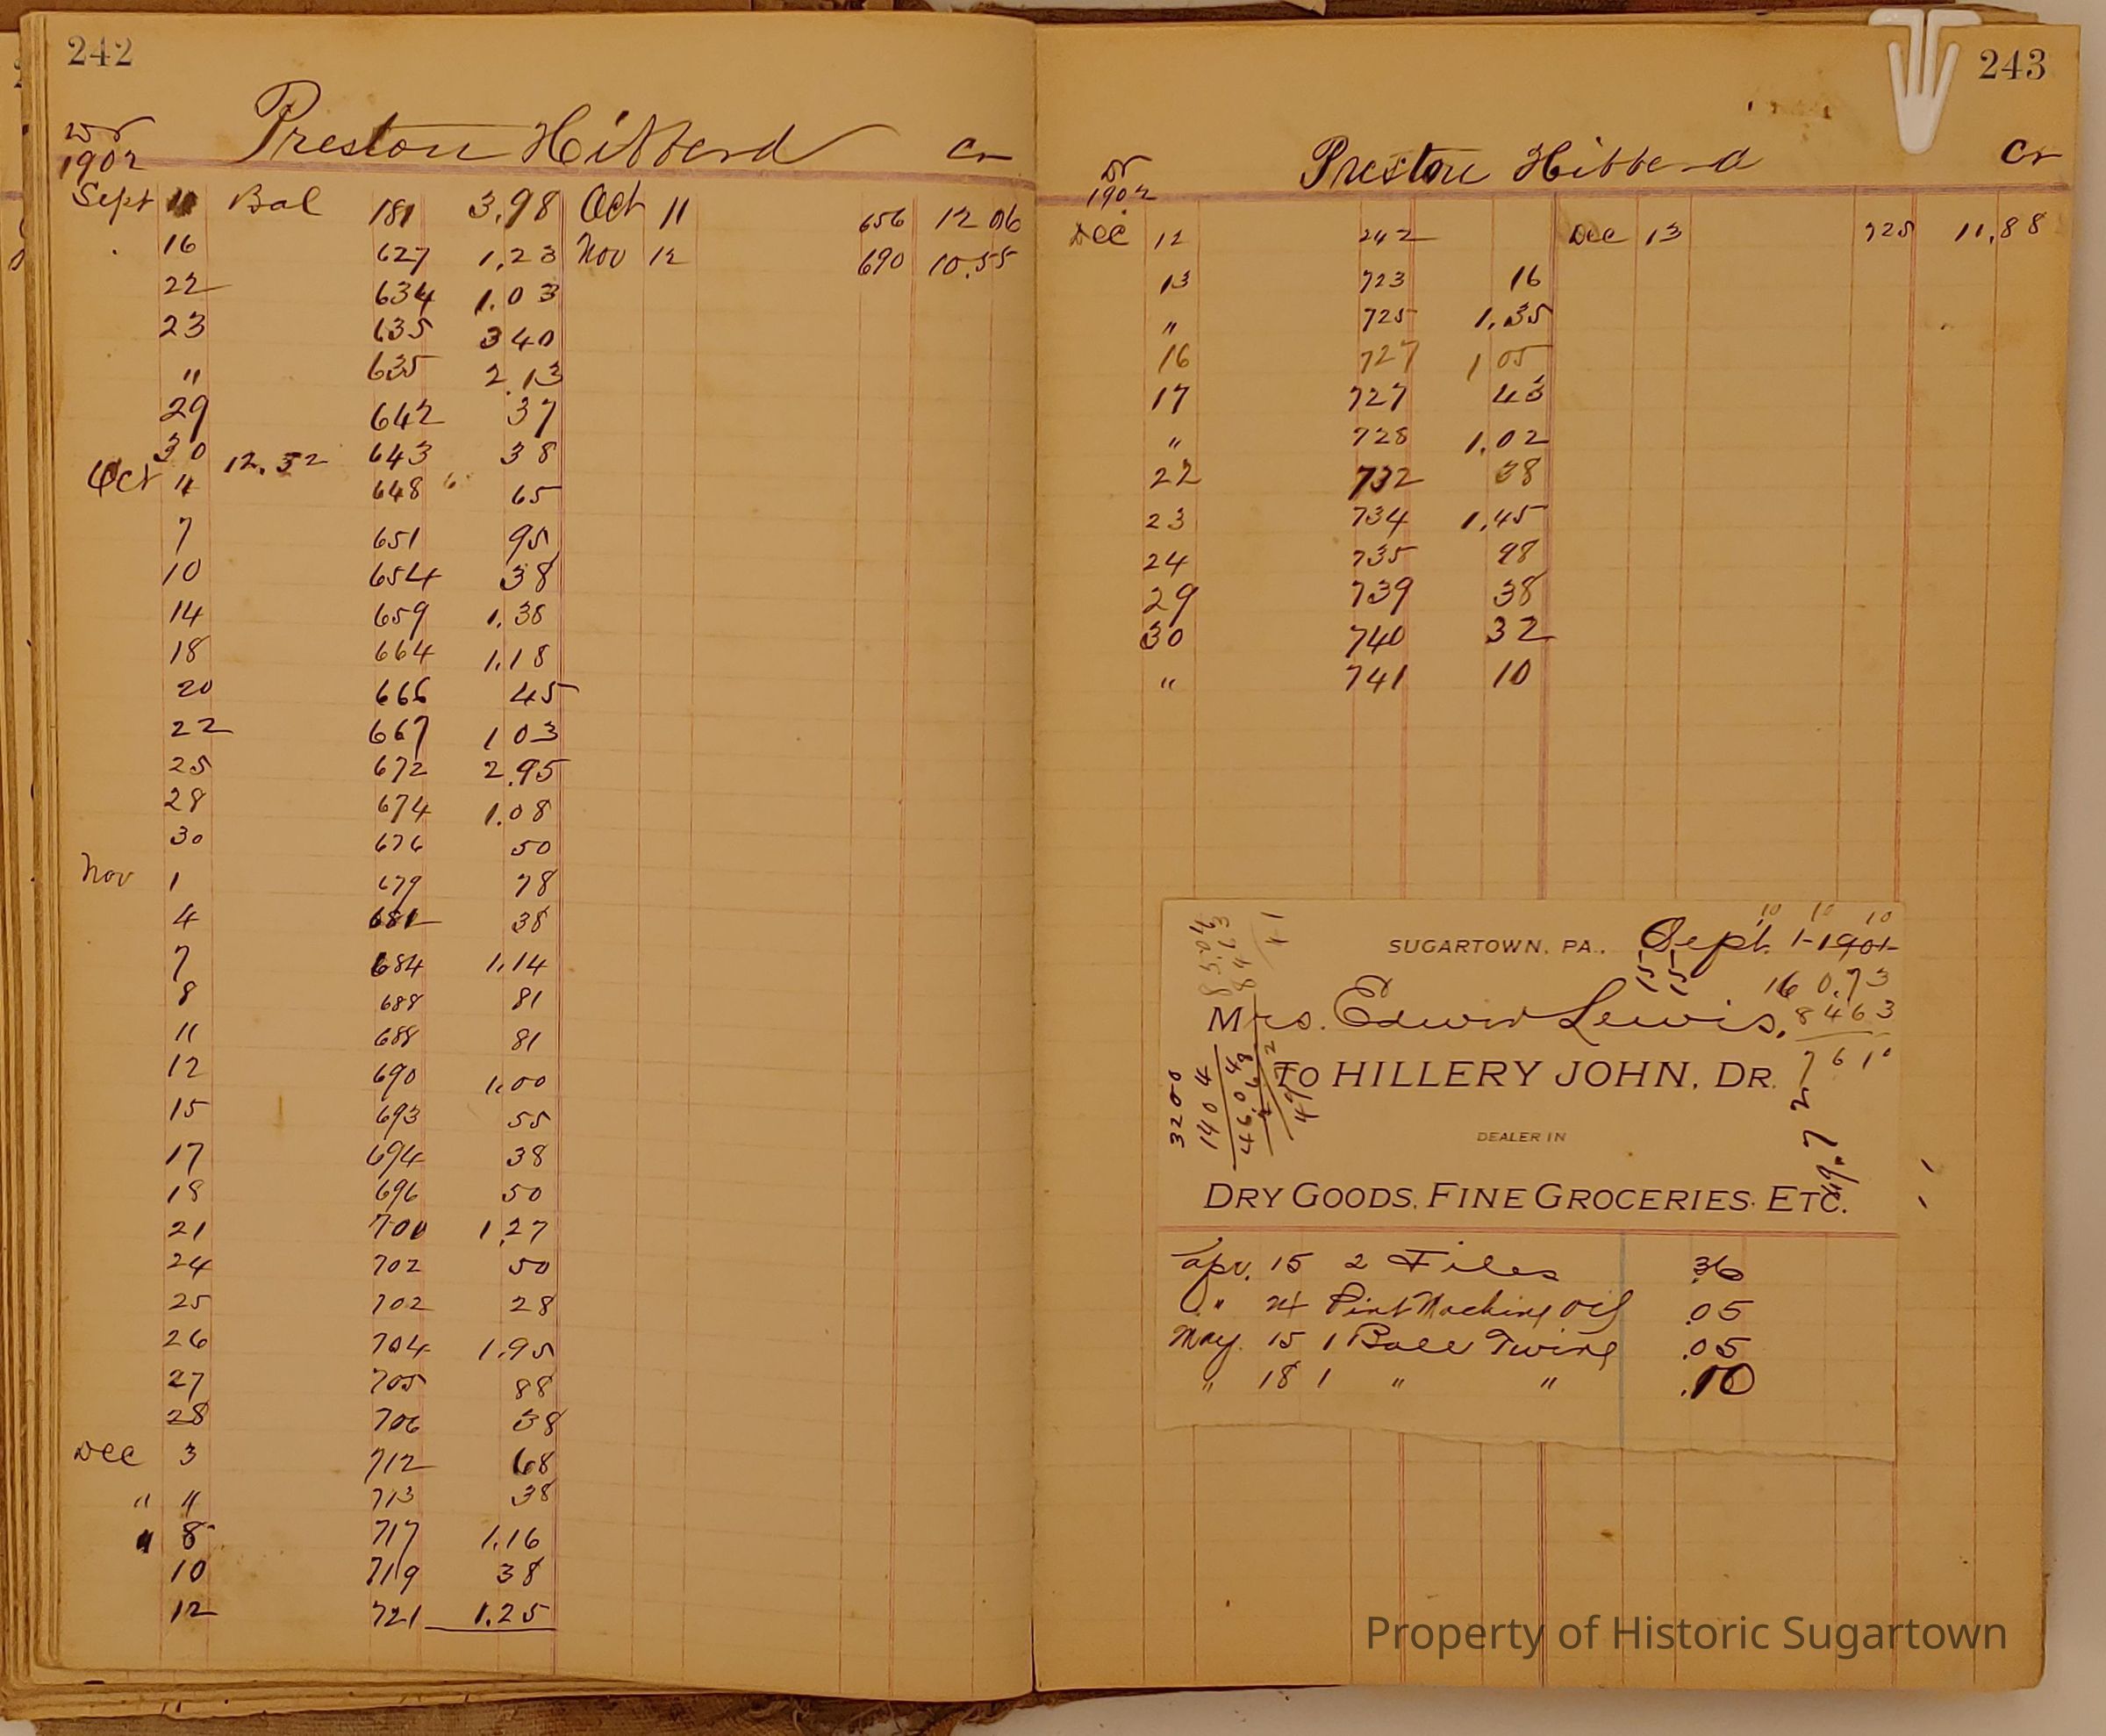 242
Preston Hibberd
Dr
1902
Cr
Sept 11 Bal 181 3.98 Oct 11 656 12 06
16 627 1.23 Nov 12 690 10.55
22 634 1.03
23 635 3 40
" 635 2.13
29 642 37
30 12.52 643 38
Oct 4 648 65
7 651 95
10 654 38
14 659 1.38
18 664 1.18
20 666 45
22 667 1 03
25 672 2.95
28 674 1.08
30 676 50
Nov 1 679 78
4 681 38
7 684 1.14
8 688 81
11 688 81
12 690 1.00
15 693 55
17 694 38
18 696 50
21 700 1.27
24 702 50
25 702 28
26 704 1.95
27 705 88
28 706 38
Dec 3 712 68
" 4 713 38
" 8 717 1.16
10 719 38
12 721 1.25
243
Dr
1902
Preston Hibberd
Cr
Dec 12 242 Dec 13 725 11.88
13 723 16
" 725 1.35
16 727 1 05
17 727 43
" 728 1.02
22 732 38
23 734 1.45
24 735 98
29 739 38
30 740 32
" 741 10
10 10 10
SUGARTOWN, PA., Sept. 1-1901
16 0.73
Mrs. Edwin Lewis,
8463
7610
To HILLERY JOHN, DR.
DEALER IN
DRY GOODS, FINE GROCERIES, ETC.
3200
1404
4604
49.72
Apr. 15 2 Files .36
" 24 Pint Machine Oil .05
May. 15 1 Ball Twine .05
" 18 1 " " .10
Property of Historic Sugartown